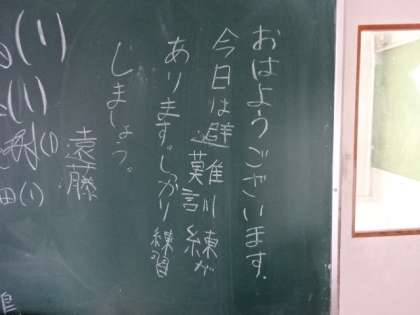 おはようございます。
今日は避難訓練が
あります。しっかり練習
しましょう。
遠藤
(1)
(1)
(1)
田(1)